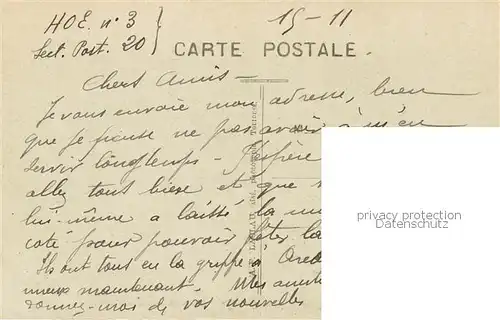 HOE. n° 3
Sect. Post. 20
15-11
CARTE POSTALE.
Chers Amis -
Je vous envoie mon adresse, bien
que je pense ne pas avoir à m'en
servir longtemps -
allez tous bien et que
lui-même a laissé la
coté pour pouvoir fêter la
Ils ont tous eu la grippe à
mieux maintenant. Mes
donnez-moi de vos nouvelles
privacy protection
Datenschutz